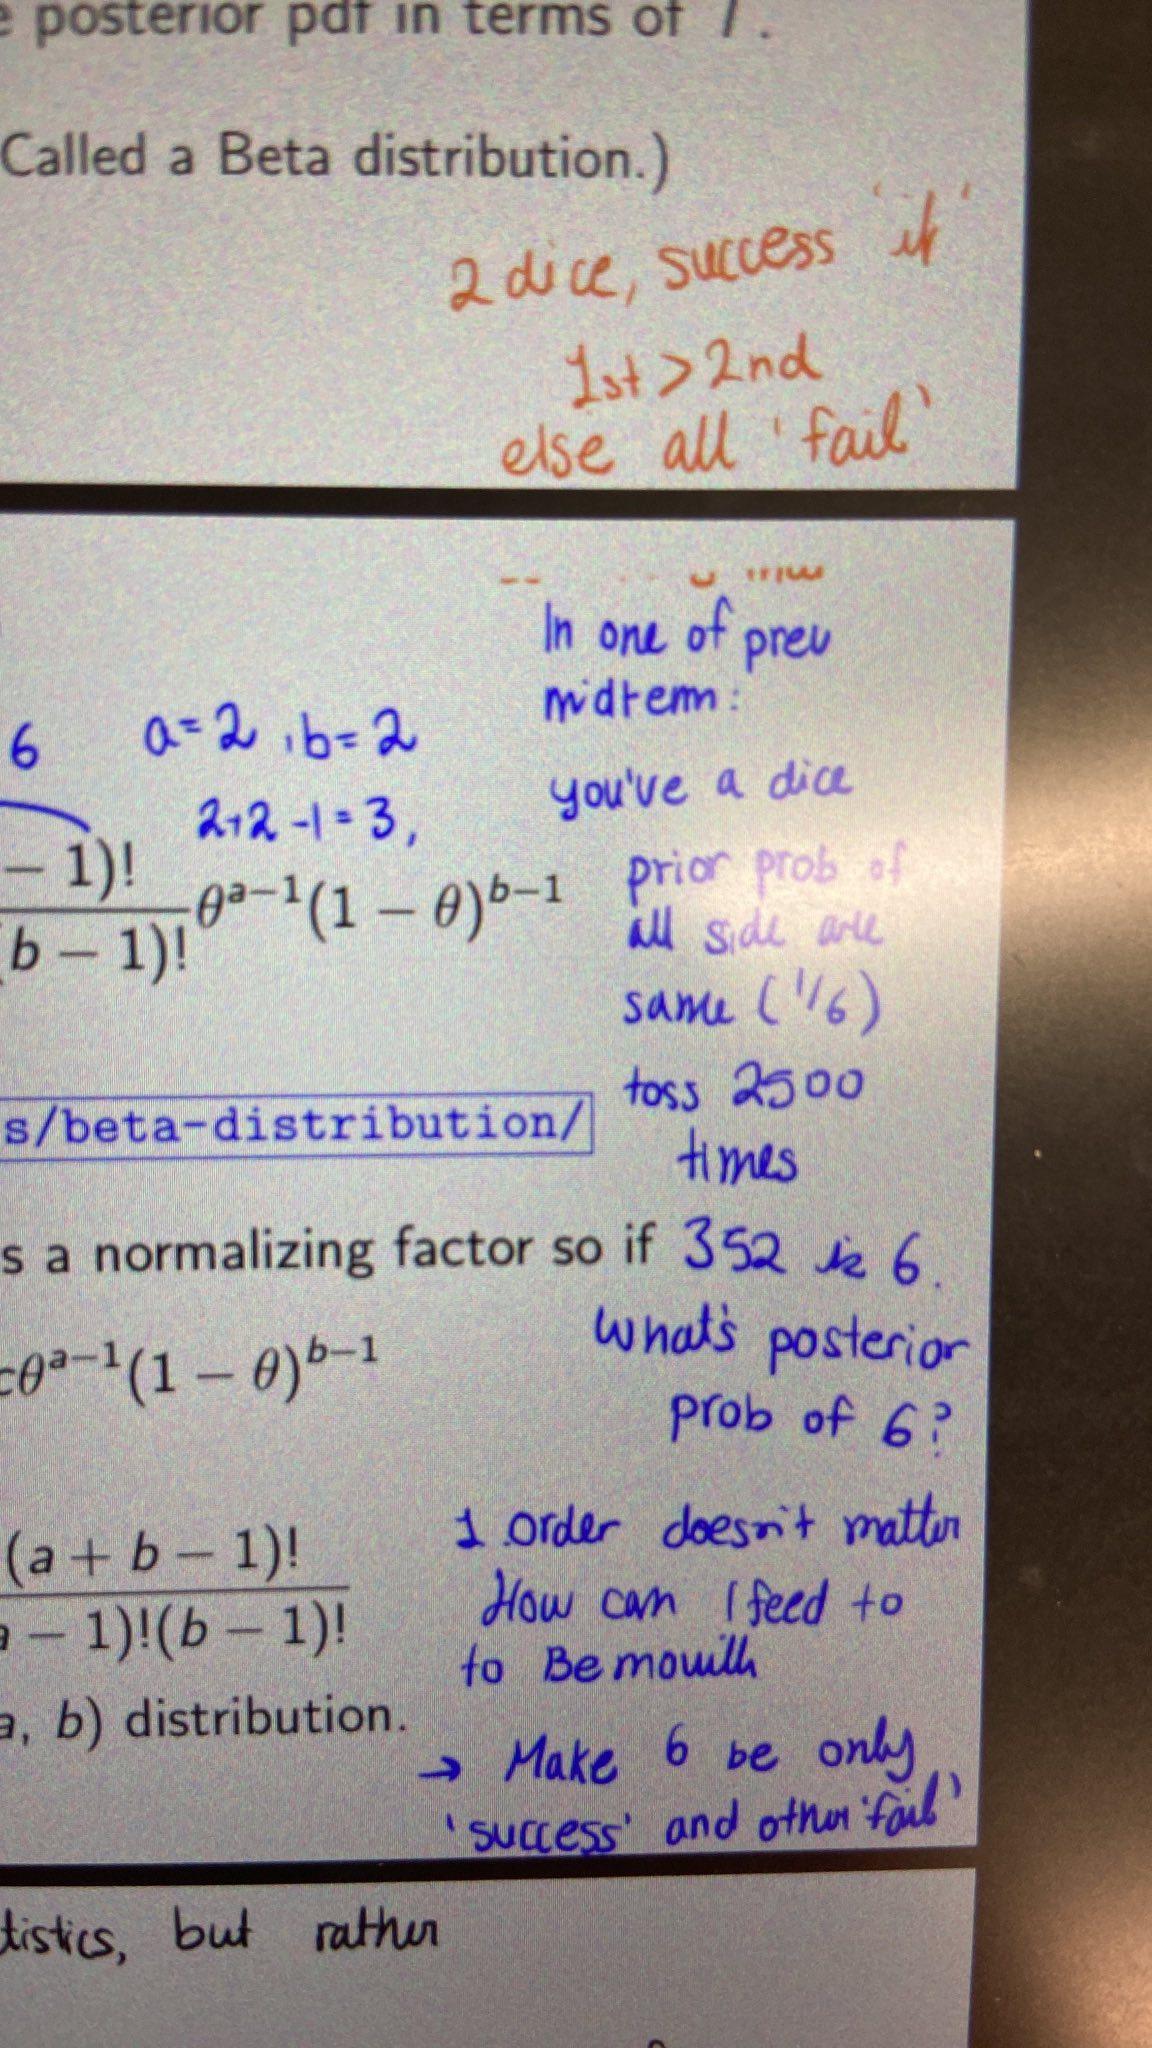 e posterior pdf in terms of T.
Called a Beta distribution.)
2 dice, success 'if'
1st > 2nd
else all 'fail'
In one of prev
midterm:
6 a=2, b=2
you've a dice
2+2-1=3,
– 1)!
b – 1)!
θ^{a−1}(1 − θ)^{b−1}
prior prob of
all side are
same (1/6)
toss 2500
times
s/beta-distribution/
s a normalizing factor so if 352 is 6.
cθ^{a−1}(1 − θ)^{b−1}
What's posterior
prob of 6?
(a + b − 1)!
a − 1)!(b − 1)!
1. order doesn't matter
How can I feed to
to Bernoulli
a, b) distribution.
→ Make 6 be only
'success' and other 'fail'
tistics, but rather